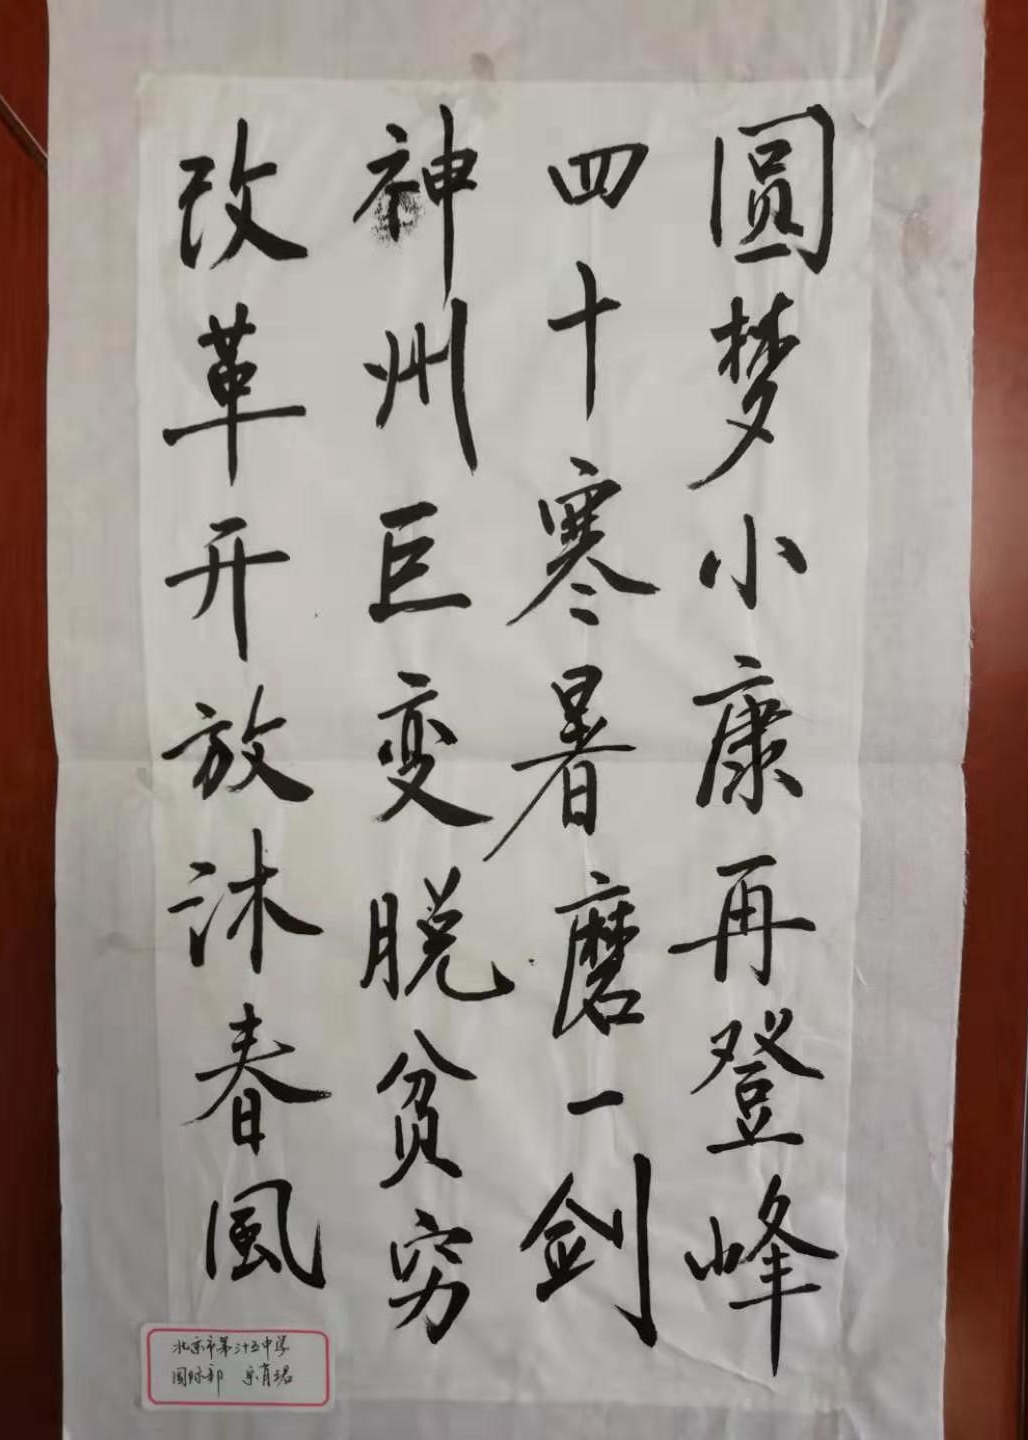 圆梦小康再登峰
四十寒暑磨一剑
神州巨变脱贫穷
改革开放沐春風
北京市第三十五中学
国际部